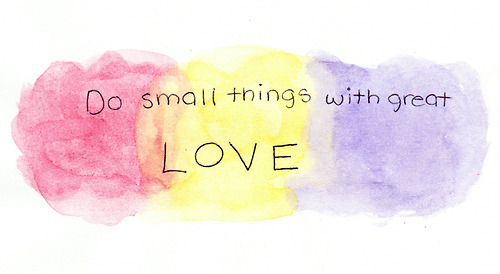 Do small things with great
LOVE